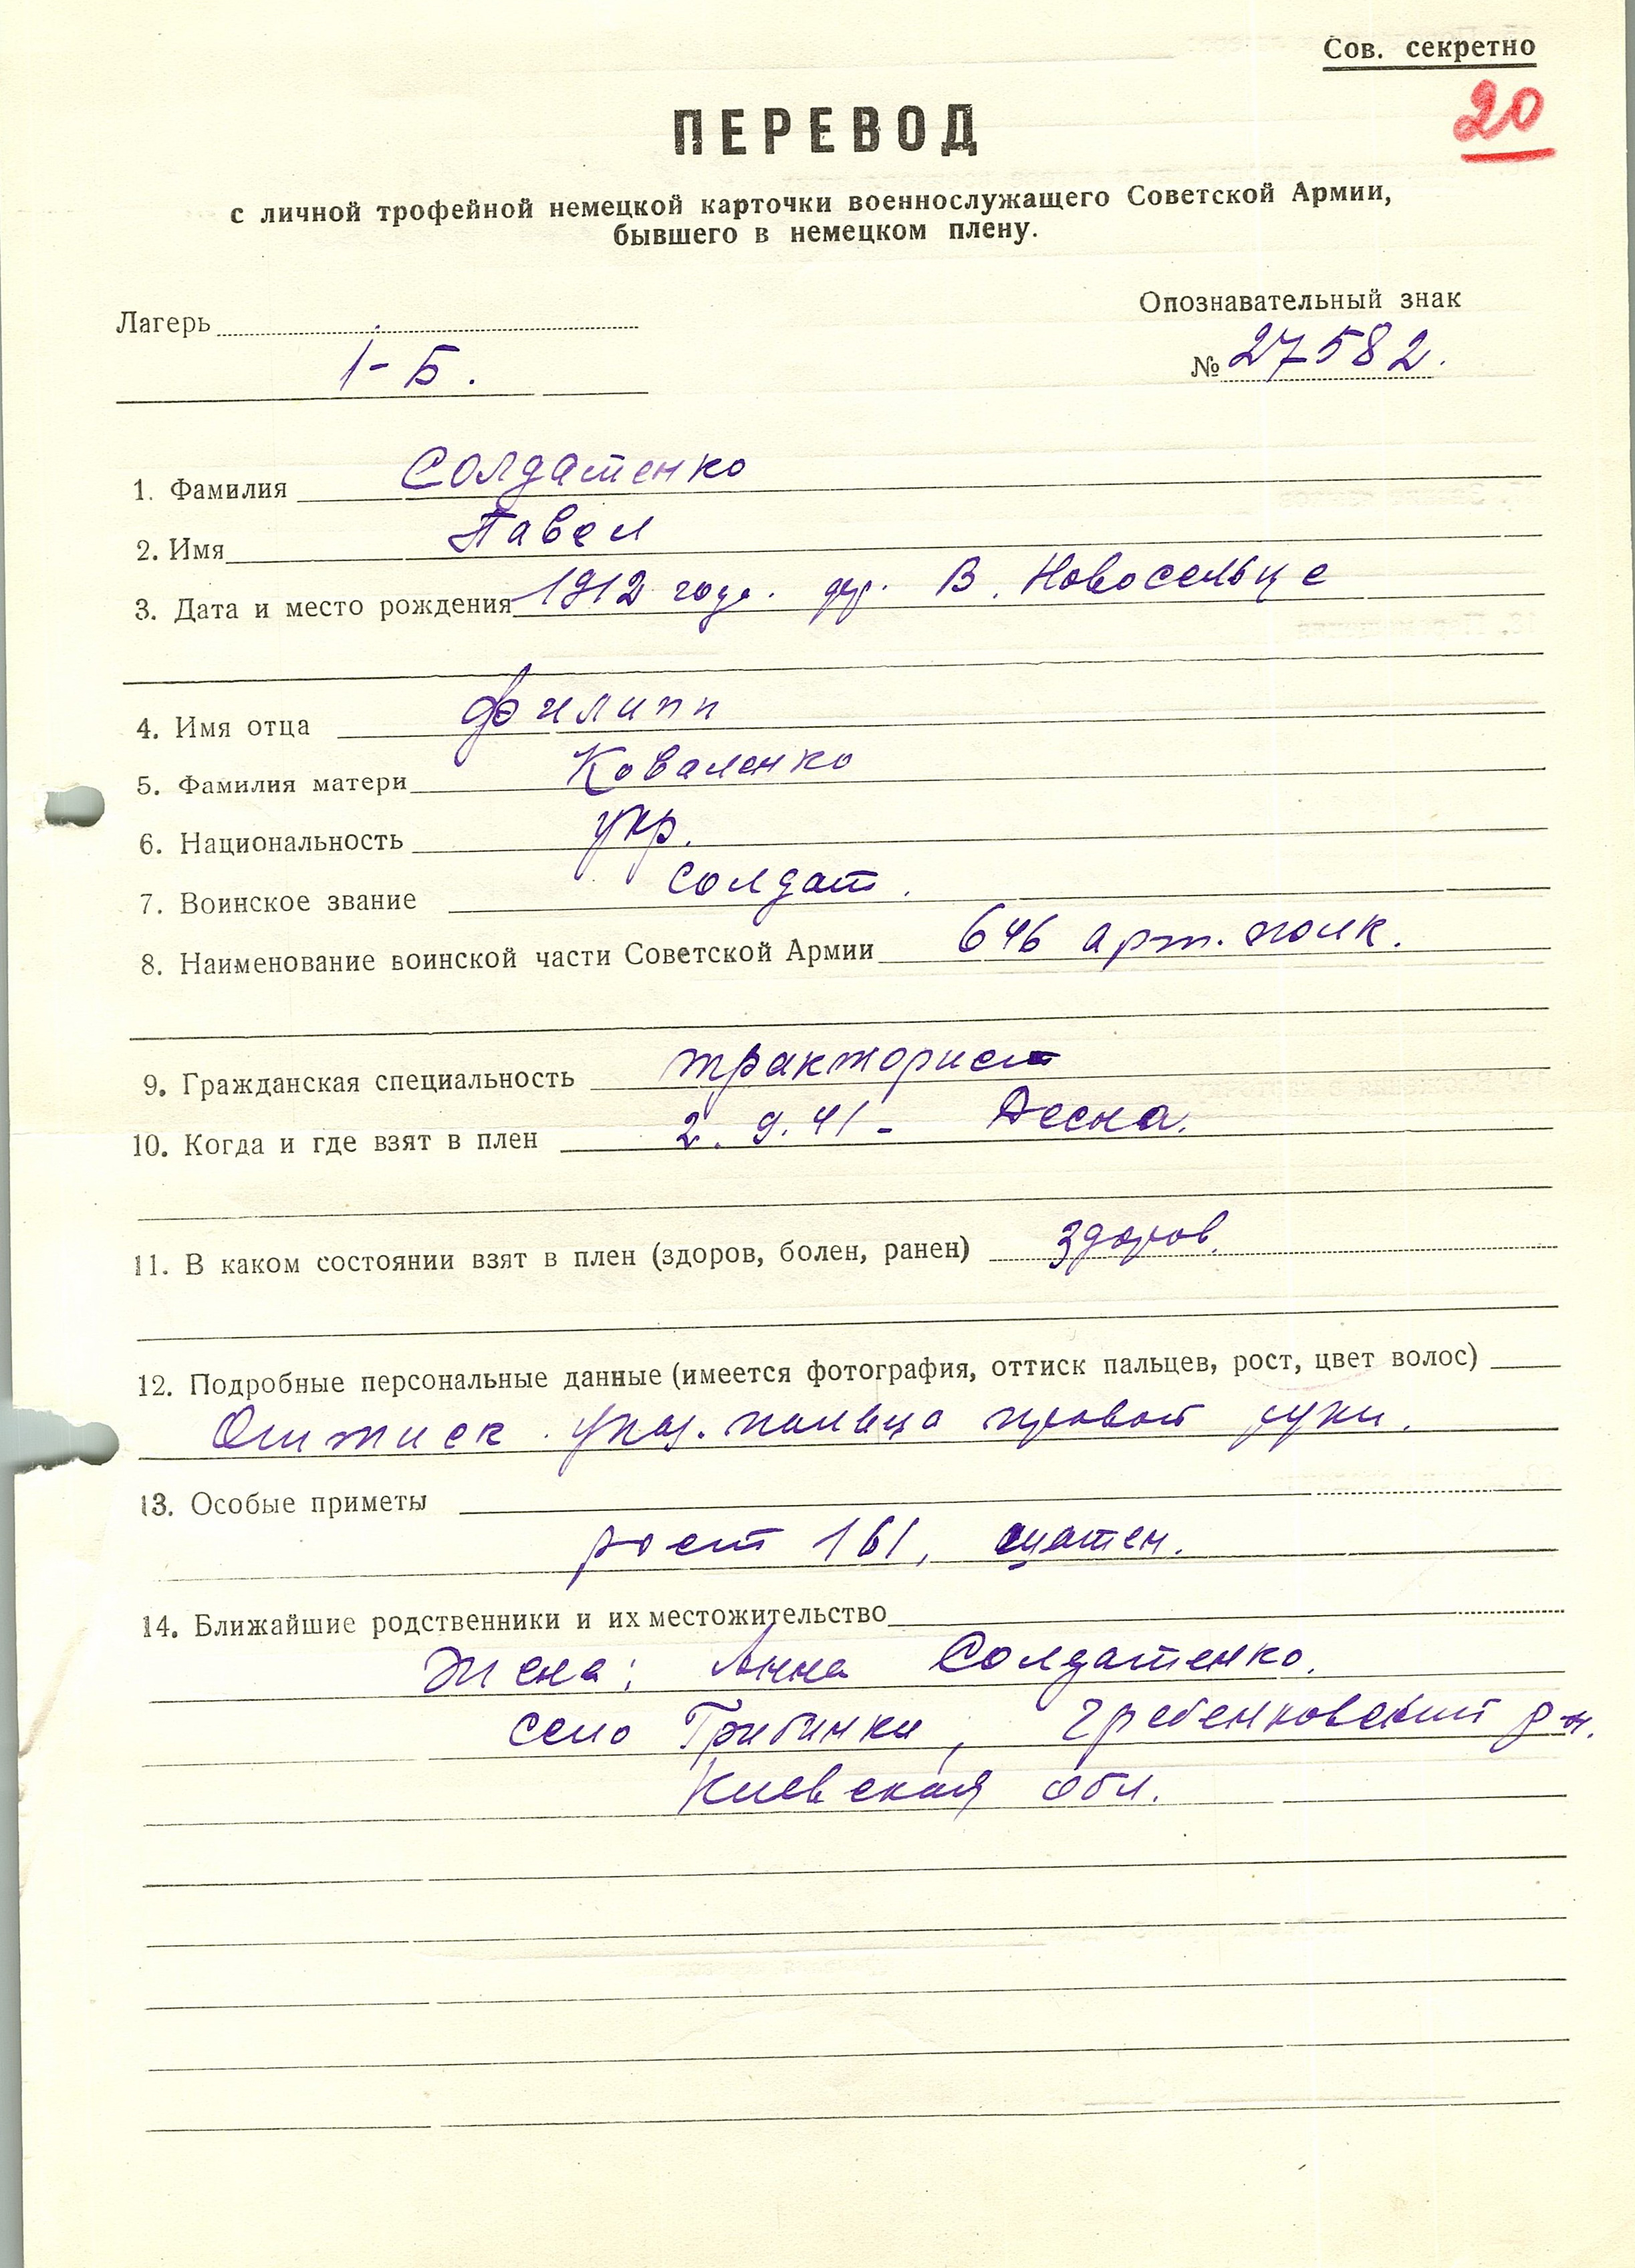 Сов. секретно
20
ПЕРЕВОД
с личной трофейной немецкой карточки военнослужащего Советской Армии,
бывшего в немецком плену.
Лагерь
Опознавательный знак
1-Б.
№ 27582.
1. Фамилия Солдатенко
2. Имя Павел
3. Дата и место рождения 1912 года. др. В. Новосельце
4. Имя отца Филипп
5. Фамилия матери Коваленко
6. Национальность укр.
7. Воинское звание солдат.
8. Наименование воинской части Советской Армии 646 арт. полк.
9. Гражданская специальность тракторист
10. Когда и где взят в плен 2. 9. 41 - Десна.
11. В каком состоянии взят в плен (здоров, болен, ранен) здоров.
12. Подробные персональные данные (имеется фотография, оттиск пальцев, рост, цвет волос)
Оттиск указ. пальца правой руки.
13. Особые приметы
рост 161, шатен.
14. Ближайшие родственники и их местожительство
Жена: Анна Солдатенко.
село Грибинки, Гребенковский р-н.
Киевская обл.